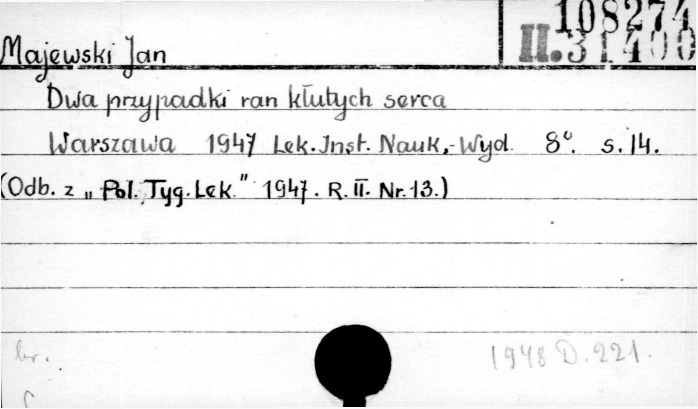 108274
II. 31400
Majewski Jan
Dwa przypadki ran kłutych serca
Warszawa 1947 Lek. Inst. Nauk.-Wyd. 8°. s. 14.
(Odb. z „Pol. Tyg. Lek." 1947. R. II. Nr. 13.)
br.
1948 D. 221.